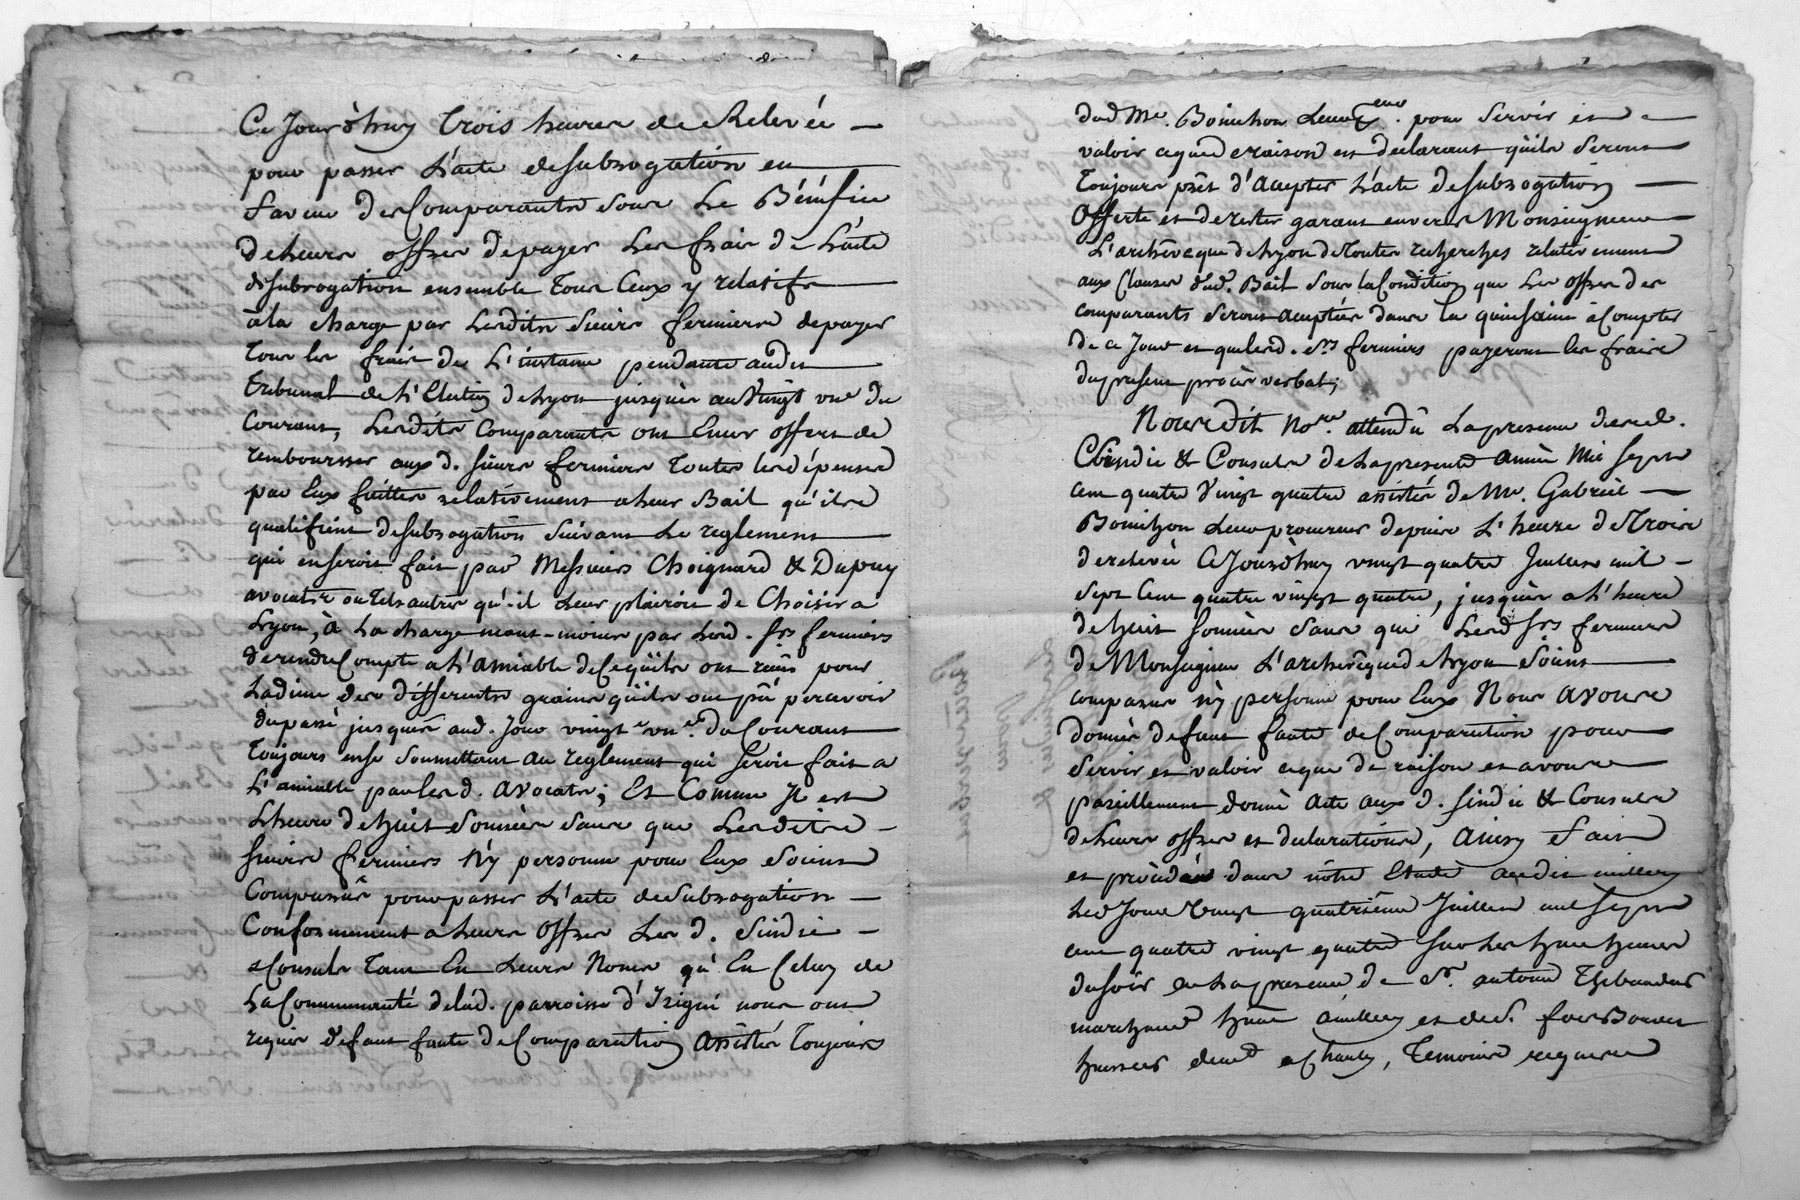 Ce Jourd'huy Trois heures de Relevée —
pour passer L'acte de subrogation en
faveur des Comparants sous Le Bénéfice
de leurs offres de payer les frais de L'acte
de subrogation ensemble Tous Ceux y relatifs
à la charge par Lesdits Sieurs fermiers de payer
Tous les frais de L'instance pendante audit
Tribunal de L'Election de Lyon jusques au Vingt une du
Courant, Lesdits Comparants ont Encor offert de
rembourser aux d. sieurs fermiers Toutes les dépenses
par Eux faittes relativement a leur Bail qu'ils
qualifient de subrogation suivant Le reglement
qui en seroit fait par Messieurs Choignard & Dupuy
avocats ou Tels autres qu'il Leur plairoit de Choisir a
Lyon, à La charge neant-moins par Lesd. Srs fermiers
de rendre Compte a L'amiable de Ce qu'ils ont pour
La dime des différents grains qu'ils ont pû percevoir
du passé jusques aud. Jour vingt une du Courant
Toujours en se soumettant au reglement qui seroit fait a
L'amiable par Les d. avocats; Et Comme Il est
L'heure de huit sonnées sans que Lesdits —
sieurs fermiers n'y personne pour Eux soient
Comparus pour passer L'acte de subrogation —
Conformement a leurs offres Les d. Sindic —
& Consuls Tant En Leurs Noms qu'En Celuy de
La Communauté de lad. parroisse d'Irigni nous ont
requis défaut faute de Comparution assistés Toujours
dud Me. Bonichon Leur pour servir et
valoir a que de raison en declarant qu'ils seront
Toujours prêt d'accepter L'acte de subrogation —
Offerte et de rester garant envers Monseigneur
L'archeveque de Lyon de toutes recherches relativement
aux Clauses dud. Bail sous la Condition que Les offres des
comparants seront acceptées dans la quinsaine à Compter
de ce Jour et que lesd. Srs fermiers payeront les frais
du present procès verbal;
Nousdit Nore. attendu La presence desd.
Sindic & Consuls de La presente année Mil sept
cent quatre vingt quatre assistés de Me. Gabriel —
Bonichon Leur procureur depuis L'heure de Trois
de relevée Ce Jourd'huy vingt quatre Juillet mil —
sept Cent quatre vingt quatre, jusques a L'heure
de huit sonnées sans que Lesd Srs fermiers
de Monseigneur L'archeveque de Lyon soient
comparus n'y personne pour Eux Nous avons
donné defaut faute de Comparution pour
servir et valoir a que de raison et avons
pareillement donné acte aux d. sindic & Consuls
de leurs offres et declarations, ainsy fait
et procédé dans nôtre Etude audit
Led Jour vingt quatrième Juillet mil sept
cent quatre vingt quatre sur Les huit heures
du soir en La presence de Sr. antoine Thebaudet
marchand et de S.
huissier demt a Charly, Temoins requis